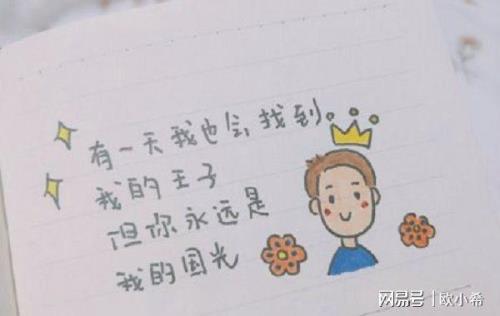 有一天我也会找到
我的王子
但你永远是
我的国光
网易号 | 欧小希